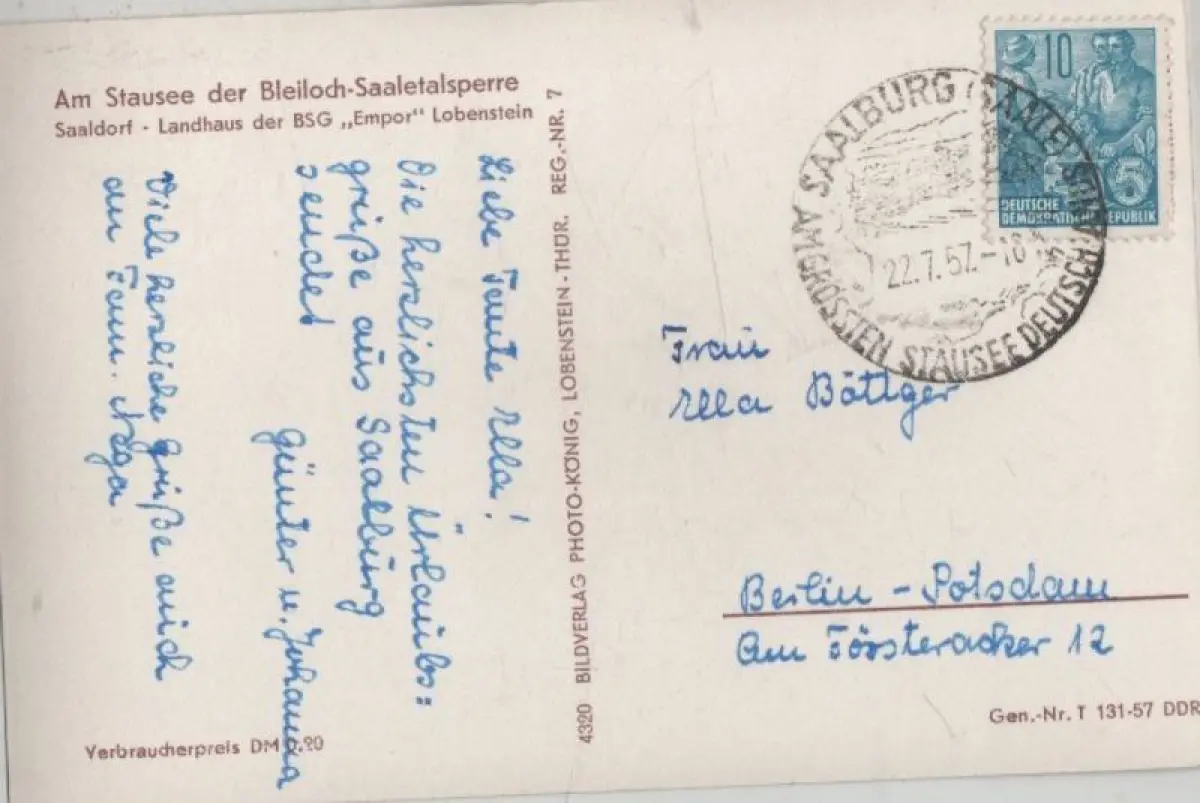 Am Stausee der Bleiloch-Saaletalsperre
Saaldorf - Landhaus der BSG „Empor" Lobenstein
Liebe Tante Ella!
Die herzlichsten Urlaubs=
grüße aus Saalburg
sendet
Günter u. Johanna
Viele herzliche Grüße auch
an Fam.
Verbraucherpreis DM 0.20
4320 BILDVERLAG PHOTO-KÖNIG, LOBENSTEIN-THÜR. REG.-NR. 7
10
DEUTSCHE
DEMOKRATISCHE REPUBLIK
5
SAALBURG (SAALE)
22.7.57.-18
AM GRÖSSTEN STAUSEE
Frau
Ella Böttger
Berlin - Potsdam
Am Försteracker 12
Gen.-Nr. T 131-57 DDR